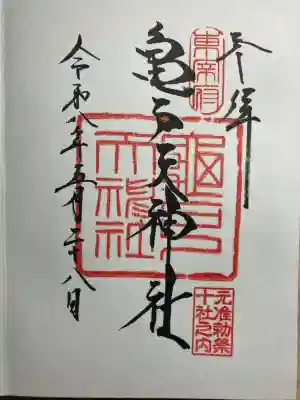 奉拝
東宰府
亀戸天神社
龜戸
天神社
元准勅祭
十社之内
令和八年五月二十八日